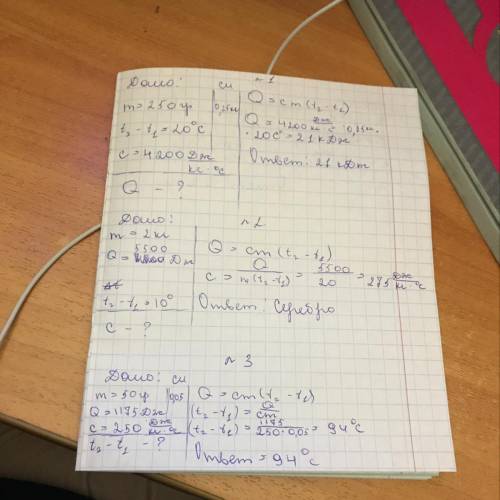 №1
Дано: си
m = 250 гр 0,25 кг
t₂ - t₁ = 20°C
c = 4200 Дж
кг·°C
Q - ?
Q = cm(t₂ - t₁)
Q = 4200 Дж
кг·°C · 0,25 кг.
· 20C° = 21 кДж
Ответ: 21 кДж
№2
Дано:
m = 2 кг
5500
Q = Дж
t₂ - t₁ = 10°
c - ?
Q = cm(t₂ - t₁)
c = Q / m(t₂ - t₁) = 5500 / 20 = 275 Дж / кг·°C
Ответ: Серебро
№3
Дано: си
m = 50 гр 0,05
Q = 1175 Дж
c = 250 Дж / кг·°C
t₂ - t₁ - ?
Q = cm(t₂ - t₁)
(t₂ - t₁) = Q / cm
(t₂ - t₁) = 1175 / 250·0,05 = 94°C
Ответ = 94°C